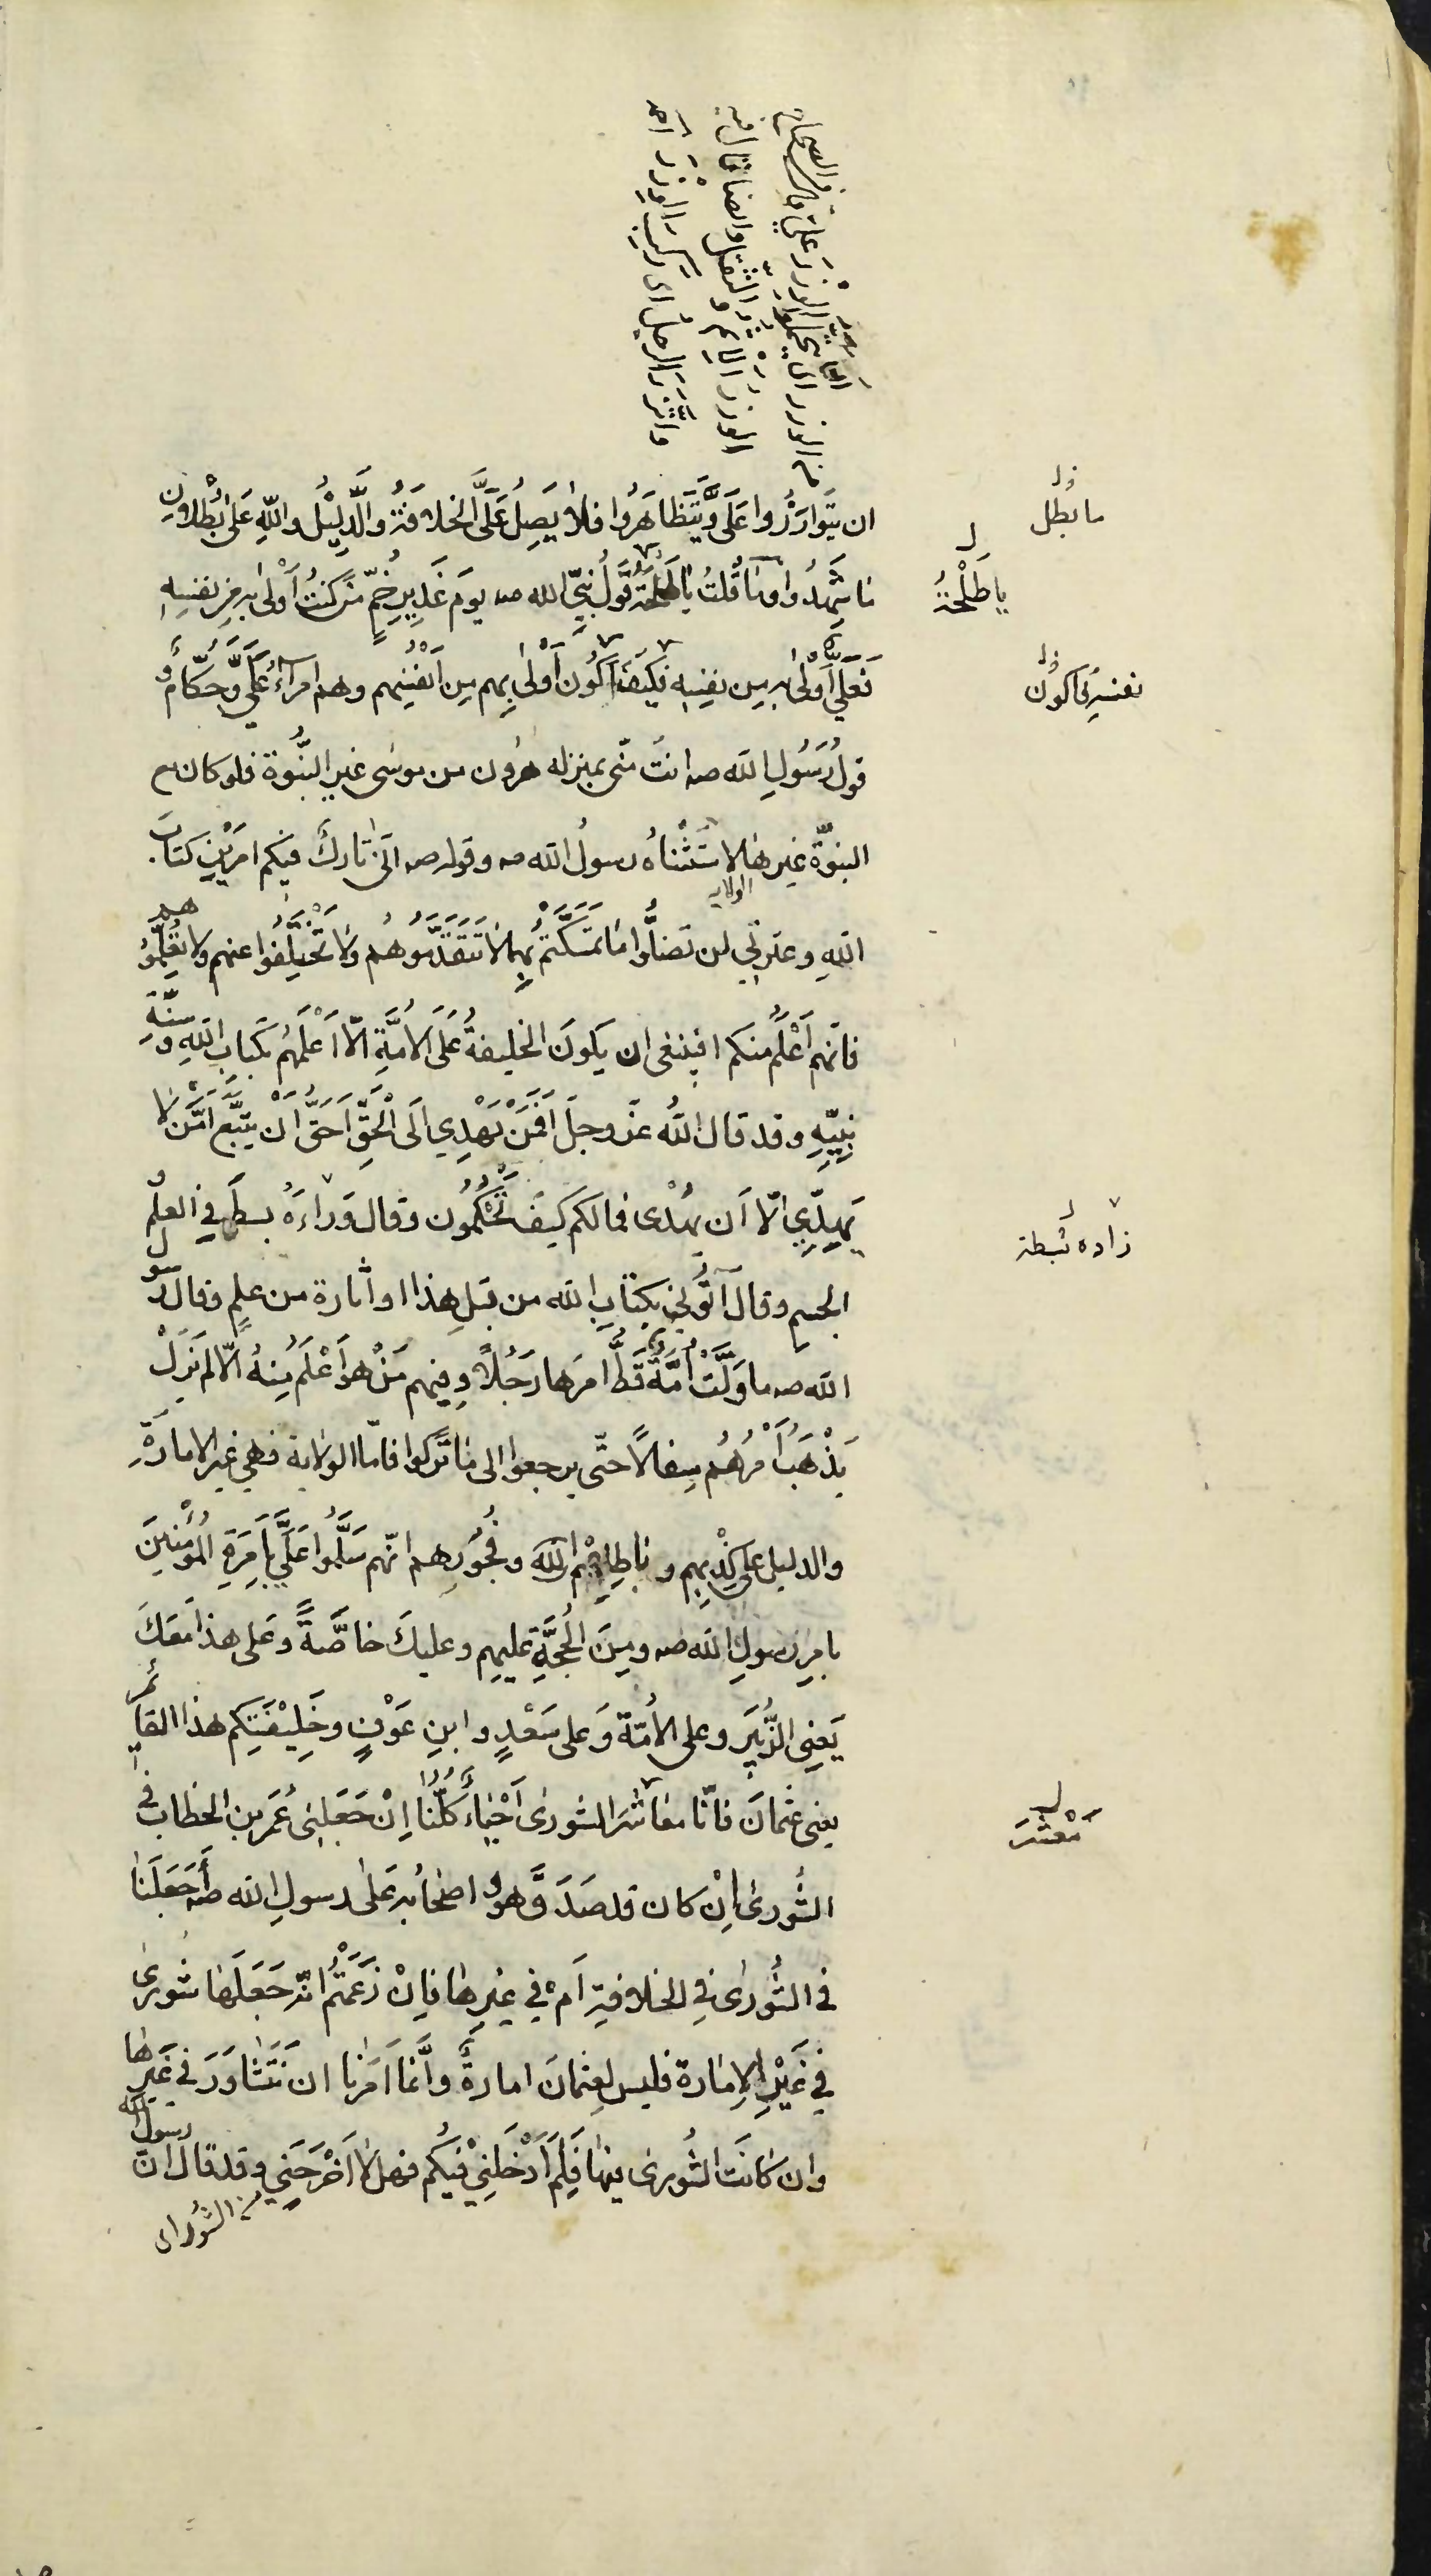 ان يتوازَرُوا عَلَيَّ وَيَتَظَاهَرُوا فلا يَصِلُ عَلِيٌّ الخلافَةَ والدَّلِيْلُ واللّهِ عَلىٰ بُطْلانِ
ما شَهِدُوا وما قُلتُ يا طلحة قَوْلُ نبيّ الله صه يومَ غَدِيرِ خُمٍّ مَن كنتُ أَوْلىٰ به من نفسِهِ
فَعَلِيٌّ أَوْلىٰ به مِن نفسِهِ فكيف أكُون أَوْلىٰ بِهم مِن أَنْفُسِهم وهم امراءُ عَلَيَّ وحُكّامٌ و
قولُ رَسُولِ الله صه انتَ منّى بمنزله هٰرون من موسٰى غير النُّبُوة فلو كان مع
النبوّة غيرها لاستَثْناهُ رسولُ الله صه وقوله صه انّى تاركٌ فيكم امرَيْنِ كتابَ
الولايه
اللهِ وعترتي لن تضلُّوا ما تَمَسَّكْتُمْ بِهما لا تَتَقَدَّمُوهُم ولا تَتَخَلَّفُوا عنهم ولا تُعَلِّمُوهم
فانّهم أَعْلَمُ منكم افينبغى ان يكونَ الخليفةُ عَلَى الاُمَّةِ الّا اَعْلَمُهم بكتابِ اللهِ وسنّةِ
نبيّهِ وقد قال اللهُ عزّ وجلّ اَفَمَنْ يَهْدِي اِلَى الْحَقِّ اَحَقُّ اَنْ يُتَّبَعَ اَمَّنْ لا
يَهِدِّي الّا اَن يُهْدى فما لكم كيفَ تَحْكُمُون وقال وَزادَهُ بسطة في العلْمِ و
الجسم وقال ائتُوني بكتابٍ الله من قبلِ هذا او اثارة من علمٍ وقال رسول
الله صه ما وَلَّتْ اُمَّةٌ قَطُّ امرَها رَجُلاً وفيهم مَنْ هو اَعْلَمُ مِنهُ الّا لم يَزَلْ
يَذْهَبُ اَمْرُهُم سِفالاً حتّى يرجعوا الى ما تَركوا فامّا الولاية فهي غير الامارةِ
والدليل على كِذْبِهِم وباطِلِهِم وفُجُورِهم انّهم سَلَّمُوا عَلَيَّ بِاِمْرَةِ المُؤْمِنينَ
بامرِ رسولِ الله صه ومِنَ الحُجَّةِ عليهم وعليكَ خاصَّةً وعَلى هذا مَعَكَ
يَعنِى الزُّبَيرَ وعلى الاُمّة وَعلى سَعْدٍ وابنِ عَوْفٍ وخَلِيْفَتِكم هذا القائم
يعنى عثمانَ فانّا معاشرَ الشورى اَحْياءٌ كُلُّنا اِنْ جَعَلَنِى عُمَر بن الخطاب في
الشُّورىٰ اِنْ كان قد صَدَقَ هو واصحابُه عَلىٰ رسولِ الله صه أَجَعَلَنا
في الشُّورٰى في الخلافةِ اَمْ في غيرِها فَاِنْ زَعَمْتُم انّه جَعَلَها شورىٰ
في غَيْرِ الاِمارة فليس لعثمانَ امارةٌ وانّما اَمَرنا ان نَتَشاوَرَ في غَيرها
وان كانَت الشُورى فيها فَلِمَ اَدْخَلَنِيْ فيكُم فهلّا اَخْرَجَني وقد قال انّ رسول الله
من الشورى
ما بطل
يا طَلْحَةُ
نفسه فاكون
زاده بسطة
مَعْشَرَ